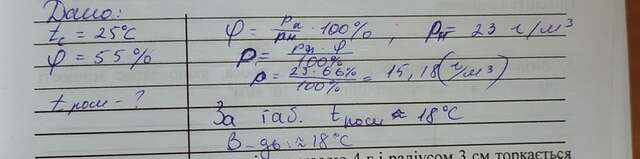 Дано:
t_c = 25°C
φ = 55%
t роси - ?
φ = ρa/ρн · 100% ; ρн = 23 г/м³
ρ = ρн · φ / 100%
ρ = 23 · 66% / 100% = 15,18 (г/м³)
За таб. t роси ≈ 18°C
В-дь: ≈ 18°C
4 г і радіусом 3 см торкається